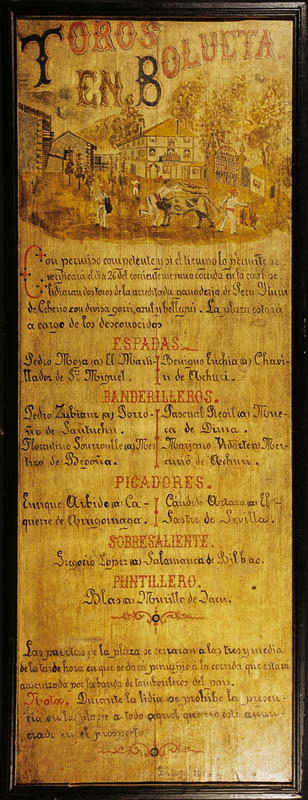 TOROS
EN BOLUETA.
Con permiso competente y si el tiempo lo permite se
verificará el dia 26 del corriente una corrida en la cual se
lidiaran dos toros de la acreditada ganaderia de Peru Yturri
de Ceberio con divisa gorri, azul y bellegui. La plaza estará
a cargo de los desconocidos
ESPADAS.
Pedro Moja (a) El Marti-
llador de Sn. Miguel.
Benigno Enchia (a) Chavi-
rri de Achuri.
BANDERILLEROS.
Pedro Zubiaur (a) Borro-
ño de Santuchu.
Florentino (a) Mes-
tizo de Begoña.
Pascual Recil (a) Mue-
ca de Dima.
Mariano Vidarte (a) Mer-
de Achuri.
PICADORES.
Enrique Arbide (a) Ca-
querre de Arrigorriaga.
Cándido Artaza (a) El
Sastre de Sevilla.
SOBRESALIENTE.
Gregorio Lopez (a) Salamanca de Bilbao.
PUNTILLERO.
Blasa Murillo de Jaen.
Las puertas de la plaza se cerraran a las tres y media
de la tarde hora en que se dará principio a la corrida que estará
amenizada por la banda de tamborileros del pais.
Nota. Durante la lidia se prohibe la presen-
cia en la plaza a todo aquel que no esté anun-
ciado en el prospecto.